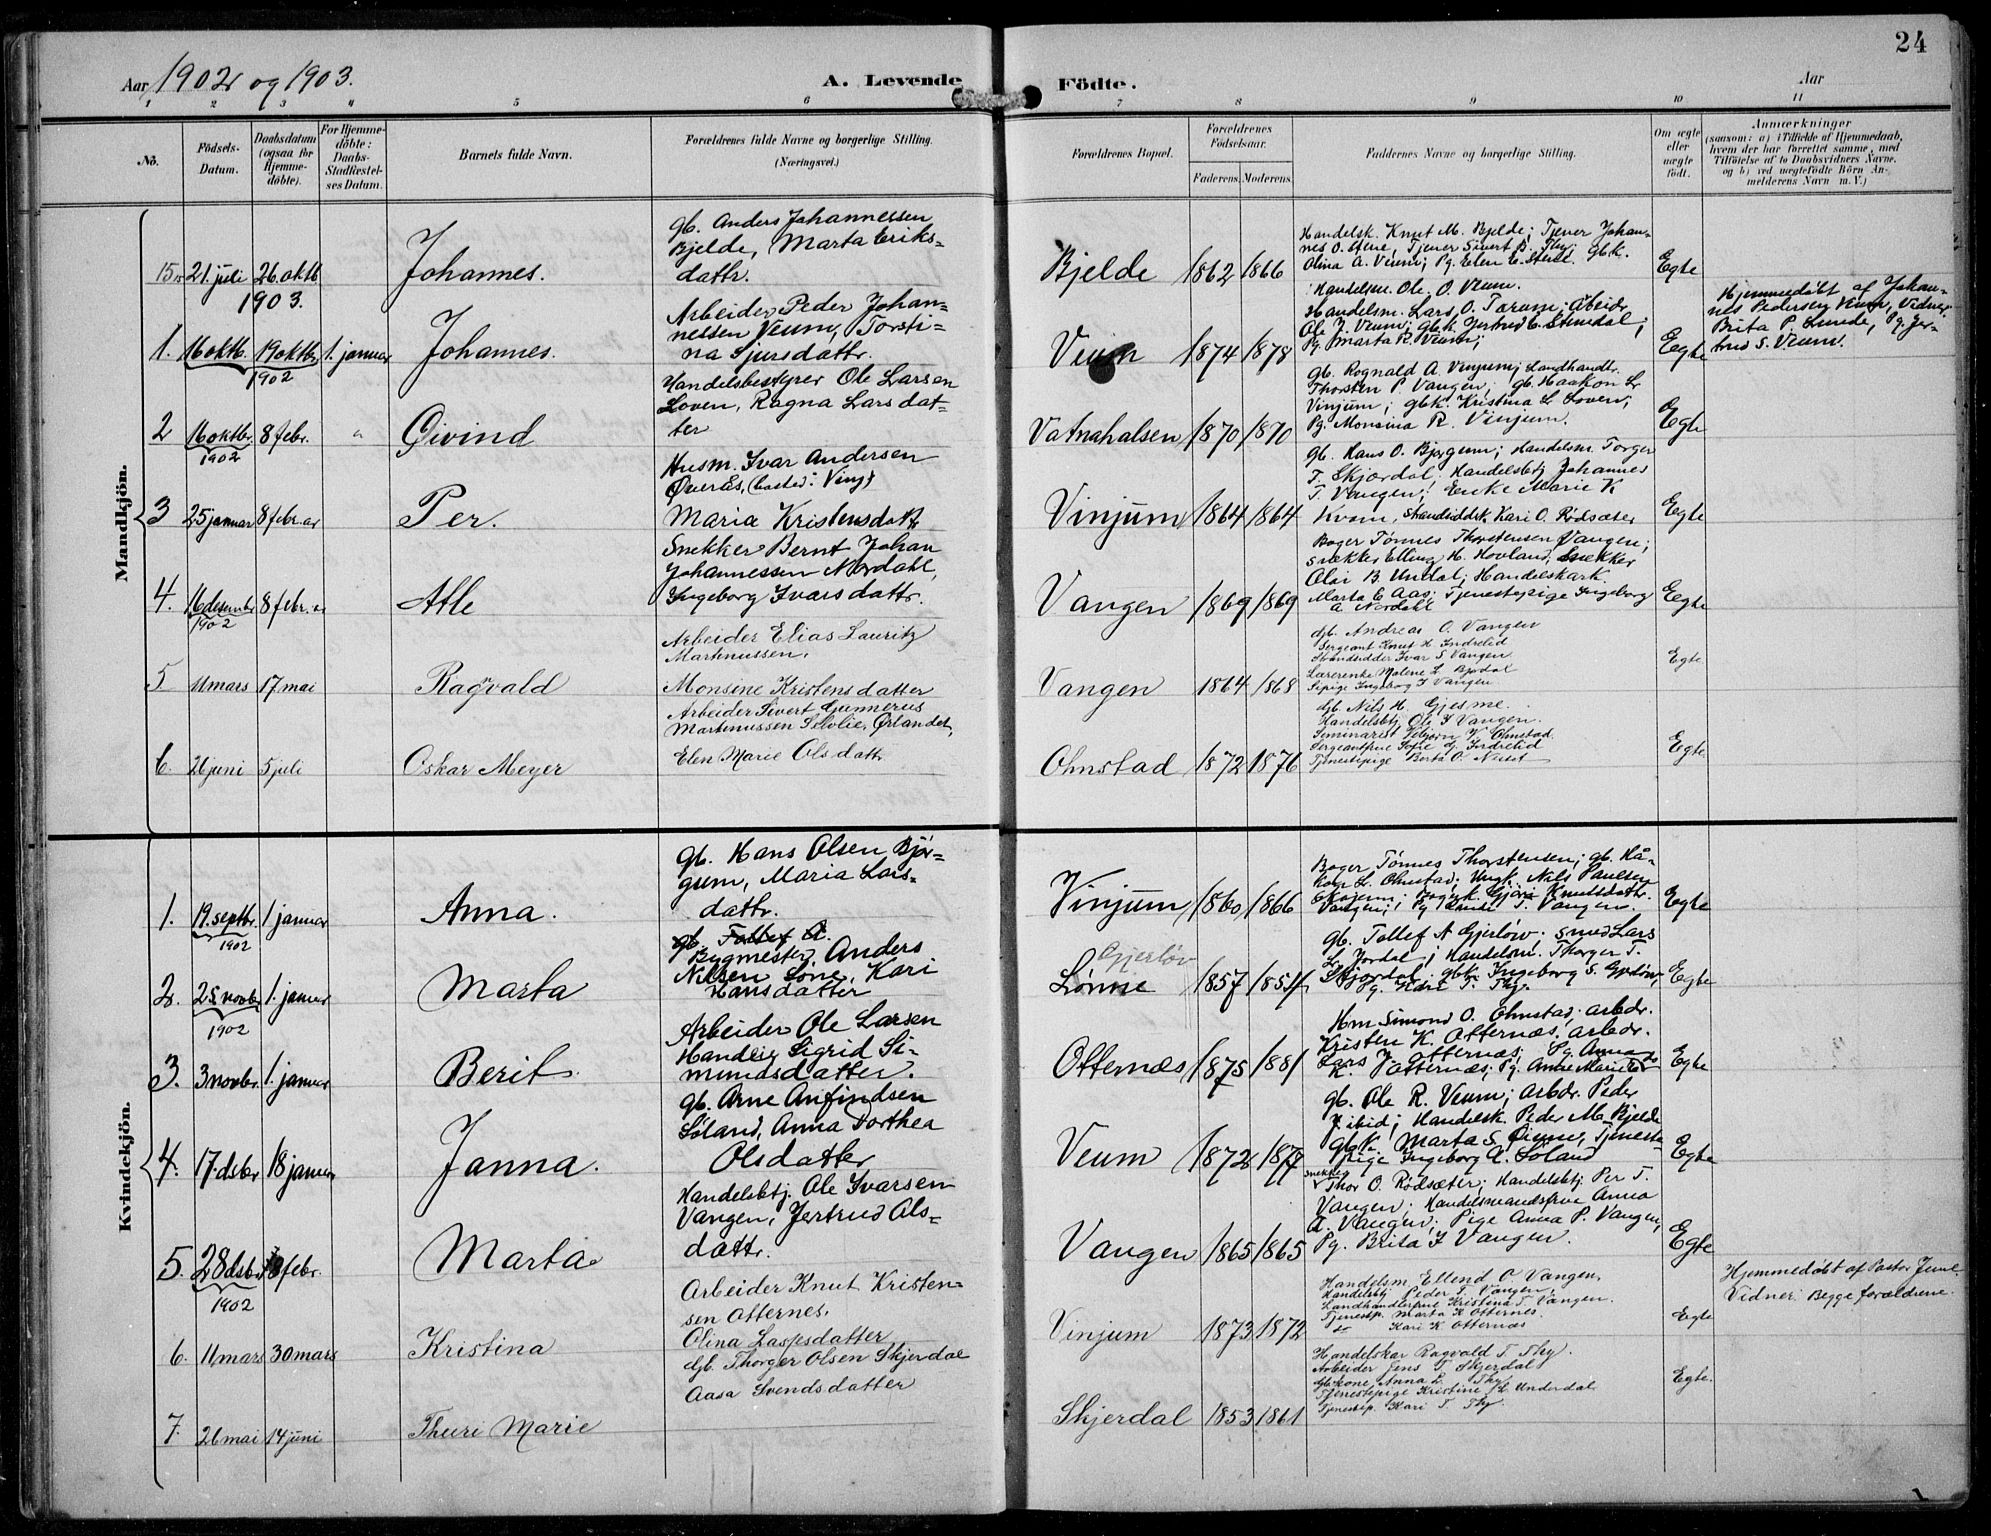 24
Aar 1902 og 1903. A. Levende Födte. Aar
1 2 3 4 5 6 7 8 9 10 11
No. Födsels-Datum. Daabsdatum (ogsaa for Hjemme-döbte). For Hjemme-döbte: Daabs-Stadfæstel-ses Datum. Barnets fulde Navn. Forældrenes fulde Navne og borgerlige Stilling. (Næringsvei.) Forældrenes Bopæl. Forældrenes Födselsaar. Faderens. Moderens. Faddernes Navne og borgerlige Stilling. Om ægte eller uægte födt. Anmærkninger
(saasom: a) i Tilfælde af Hjemmedaab,
hvem der har forrettet samme, med
Tilföielse af to Daabsvidners Navne.
og b) ved uægtefödte Börn An-
melderens Navn m. V.)
Mandkjön.
15 21 juli 26 oktb Johannes.
gb. Anders Johannessen
Bjelde, Marta Eriks-
dattr.
Bjelde 1862 1866
Handelsk. Knut M. Bjelde; Tjener Johan-
nes O. Tjener Sivert B. Thy; Gbk.
Olina A. Veum; Pg. Elen E.
Egte
1903.
1. 16 oktb. 19 oktbr 1902 1. januar Johannes.
Arbeider Peder Johan-
nessen Veum, Torsti-
na Sjursdattr.
Veum 1874 1878
Handelsm. Ole O. Veum.
Handelsm. Lars O.
Ole J. Veum; Gbk. Jertrud E. Stendal;
Pg. Marta R. Veum;
Egte
Hjemmedøbt af Johan-
nes Pedersen Veum, Vidner
Brita P. Lunde, Pg. Jer-
trud S. Veum.
2 16 oktbr. 1902 8 febr. " Øivind
Handelsbestyrer Ole Larsen
Loven, Ragna Larsdat-
ter
Vatnahalsen 1870 1870
gb. Rognald A. Vinjum; Landhandlr.
Thorsten P Vangen; gb. Haakon L
Vinjum; gbk. Kristina L Loven;
Pg. Monsina R. Vinjum.
Egte
3 25 januar 8 febr.ar Per.
Husm. Ivar Andersen
Øverås, (bosted: Vinj.)
Maria Kristensdatr
Vinjum 1864 1864
gb. Hans O. Bjørgum; Handelsm. Torger
T. Skjerdal; Handelsbtj Johannes
T. Vangen; Enke Marie K
Kvam, Kari O. Rødsæter
Egte
4. 16 desembr 1902 8 febr. Atle
Snekker Bernt Johan
Johannessen Nordahl,
Ingeborg Ivarsdattr.
Vangen 1869 1869
Bager Tønnes Thorstensen Vangen;
Snekker Elling H. Hovland, Snekker
Olai B. Undal; Handelskark.
Marta E Aas; Tjenestepige Ingeborg
A Nordahl
Egte
5 11 mars 17 mai Ragvald
Arbeider Elias Lauritz
Martinussen.
Monsine Kristensdatter
Vangen 1864 1868
Gb. Andreas O. Vangen
Sergeant Knut H Indrelid
Strandsidder Ivar S Vangen
Malene L
Ingeborg I Vangen
Egte
6. 26 juni 5 juli Oskar Meyer
Arbeider Sivert Gunnerus
Martinussen Selvlie, Ørlandet,
Elen Marie Olsdattr
Ohnstad 1872 1876
Gb. Nils H Gjesme.
Handelsbtj Ole I Vangen.
Seminarist V. Ohnstad
Sergeantfrue Sofie G. Indrelid
Tjenestepige Berta O.
Egte
Kvindekjön.
1. 19. septbr. 1902 1. januar Anna.
gb. Hans Olsen Bjør-
gum, Maria Lars-
dattr.
Vinjum 1860 1866
Bager Tønnes Thorstensen; gb. Hå-
kon L. Ohnstad; Ungk. Nils Paulsen
Knutsdatr.
Vangen; Pg T. Vangen.
Egte
2. 25 novbr 1902 1. januar Marta
gb. Tollef A.
Bygmester Anders
Nilsen Lone, Kari
Hansdatter
Gjerløv
Lønne 1857 1854
gb. Tollef A Gjerløw. Smed Lars
L. Jordal; Handelsm. Thorger T.
Skjerdal. gbk. Ingeborg S.
Pg. Kari T. Thy.
Egte
3. 3 novbr. 1. januar Berit
Arbeider Ole Larsen
Handlei Sigrid Si-
mundsdatter.
Otternæs 1875 1881
Hm Simond O. Ohnstad; arbdr.
Kristen K. Otternæs, arbdr.
Lars J Otternæs; Pg. Anna
K. Otternæs; Pg.
Egte
4. 17. dsbr 18 januar Janna.
gb. Arne Anfindsen
Søland, Anna Dorthea
Olsdatter
Veum 1872
gb. Ole R. Veum; arbdr. Peder
J. ibid; Handelsk. Peder M. Bjelde
gbk. Marta S. Tjeneste-
pige Ingeborg A. Søland
Egte
5. 28 dsbr 1902 8 febr. Marta
Handelsbtj. Ole Ivarsen
Vangen, Jertrud Ols-
dattr.
Vangen 1865 1865
Snekker
Thor O. Rødsæter; Handelsbtj Per T.
Vangen; Handelsmandsfrue Anna
A. Vangen; Pige Anna P. Vangen,
Pg. Brita I Vangen.
Egte
6. 11 mars 30 mars Kristina
Arbeider Knut Kristen-
sen Otternes.
Olina Larsdatter
Vinjum 1873 1872
Handelsm Ellend O Vangen,
Handelsbtj Peder T. Vangen,
Landhandlerfrue Kristina T. Vangen.
Tjenestep. Marta K Otternes
do Kari K Otternæs
Egte
Hjemmedøbt af Pastor Juul.
Vidner: Begge forældrene.
7. 26 mai 14 juni Thuri Marie
Gb. Thorger Olsen Skjerdal
Aasa Svendsdatter
Skjerdal 1853 1861
Handelskar Ragvald T Thy.
Arbeider Jens T Skjerdal
Gbkone Anna L. Thy
Tjenestepige Kristine L. Underdal
Tjenestep. Kari T Thy.
Egte.